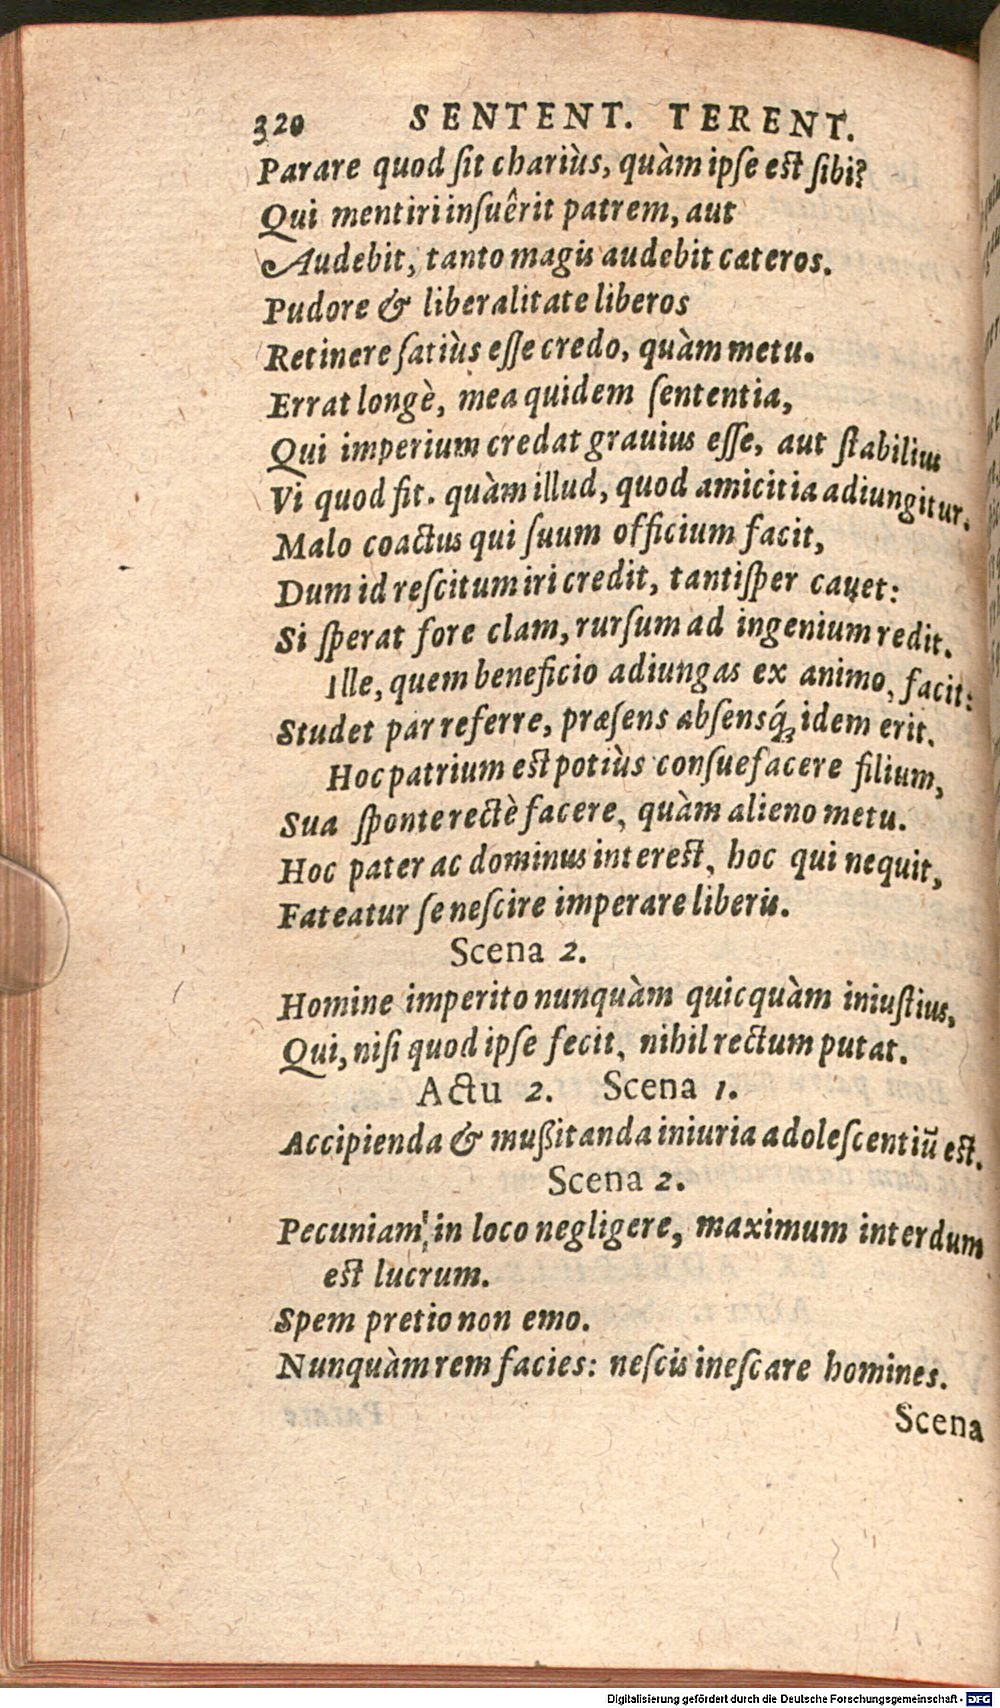 320 SENTENT. TERENT.
Parare quod ſit chariùs, quàm ipſe eſt ſibi?
Qui mentiri inſuêrit patrem, aut
Audebit, tanto magis audebit cæteros.
Pudore & liberalitate liberos
Retinere ſatiùs eſſe credo, quàm metu.
Errat longè, mea quidem ſententia,
Qui imperium credat grauius eſſe, aut ſtabilius
Vi quod fit. quàm illud, quod amicitia adiungitur.
Malo coactus qui ſuum officium facit,
Dum id reſcitum iri credit, tantiſper cauet:
Si ſperat fore clam, rurſum ad ingenium redit.
Ille, quem beneficio adiungas ex animo, facit:
Studet par referre, præſens abſensq́; idem erit.
Hoc patrium eſt potiùs conſuefacere filium,
Sua ſponte rectè facere, quàm alieno metu.
Hoc pater ac dominus intereſt, hoc qui nequit,
Fateatur ſe neſcire imperare liberis.
Scena 2.
Homine imperito nunquàm quicquàm iniuſtius,
Qui, niſi quod ipſe fecit, nihil rectum putat.
Actu 2. Scena 1.
Accipienda & mußitanda iniuria adoleſcentiū eſt.
Scena 2.
Pecuniam in loco negligere, maximum interdum
eſt lucrum.
Spem pretio non emo.
Nunquàm rem facies: neſcis ineſcare homines.
Scena
Digitalisierung gefördert durch die Deutsche Forschungsgemeinschaft - DFG